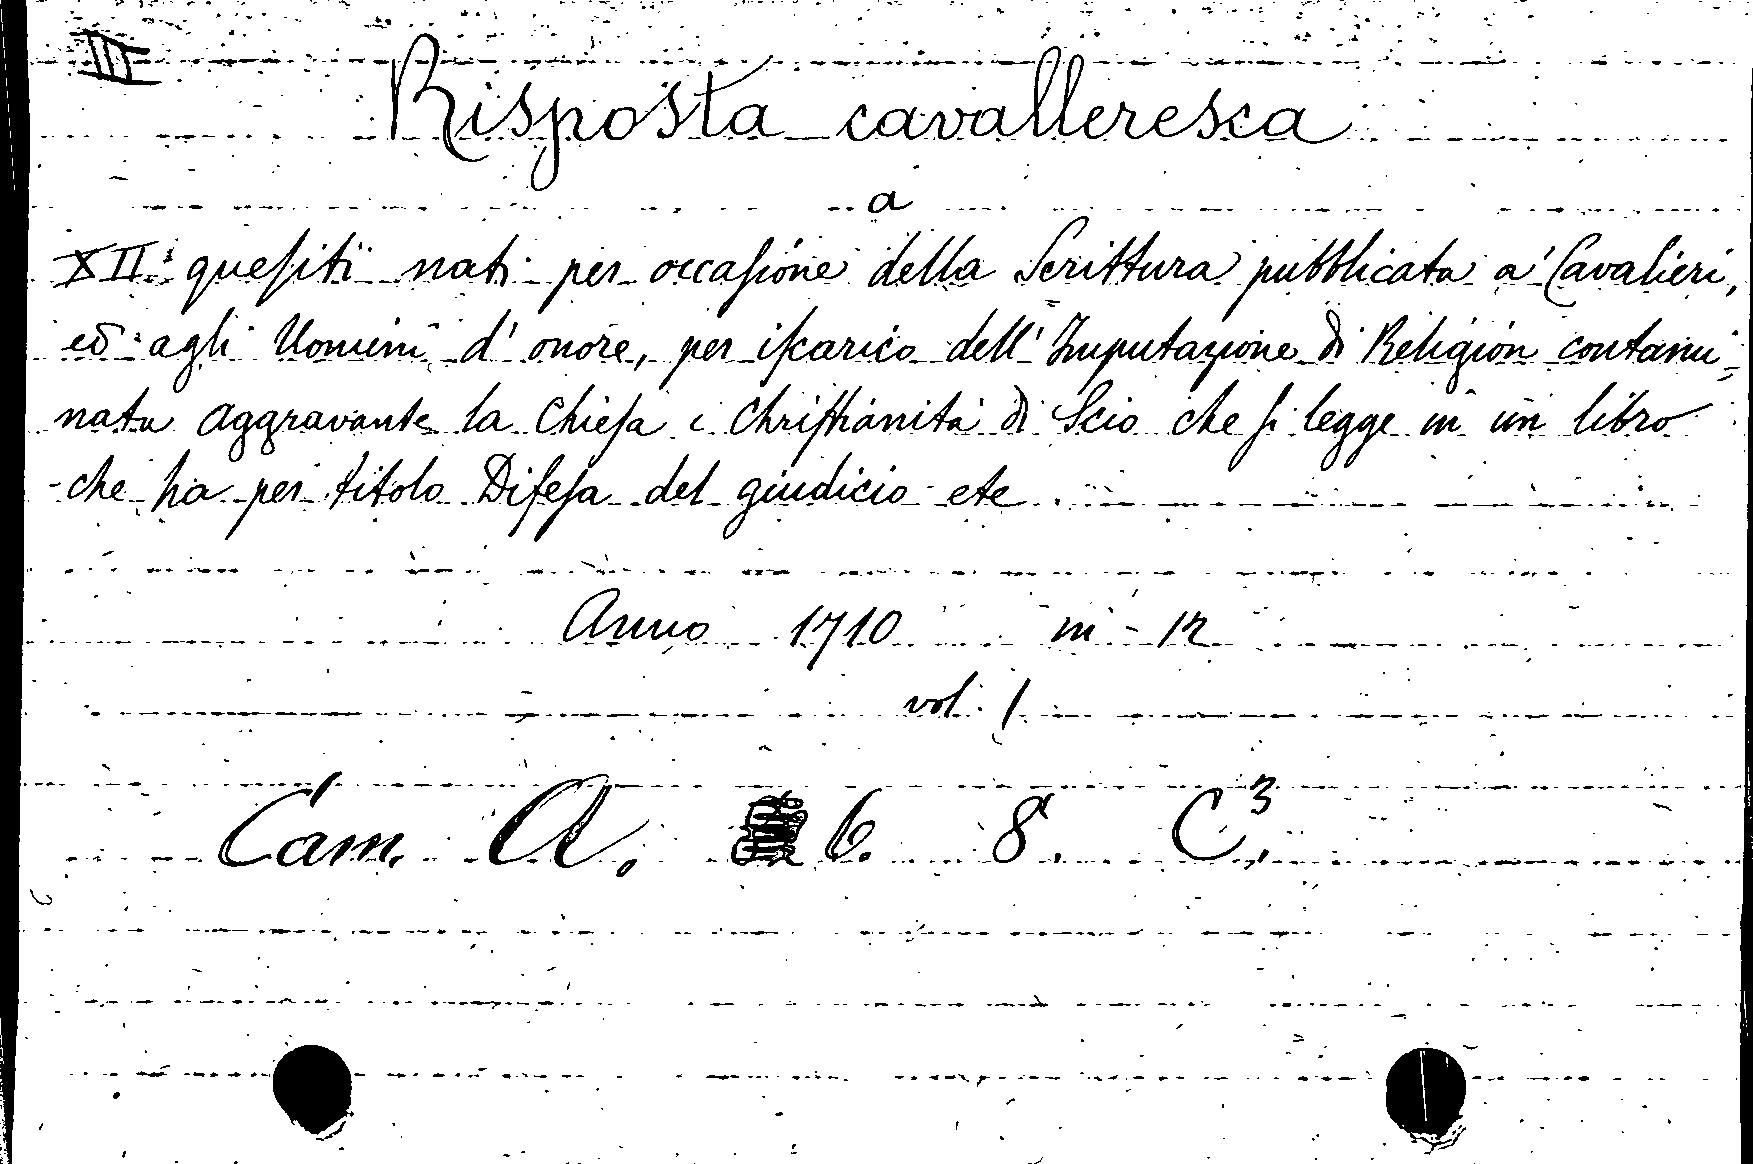 III
Risposta cavalleresca
a
XII quesiti nati per occasione della Scrittura pubblicata a' Cavalieri,
ed agli Uomini d' onore, per iscarico dell' Imputazione di Religion contami=
nata aggravante la Chiesa e Christianità di Scio che si legge in un libro
che ha per titolo Difesa del giudicio etc
Anno 1710 in - 12
vol. 1
Cam. A. 6. 8. C³.